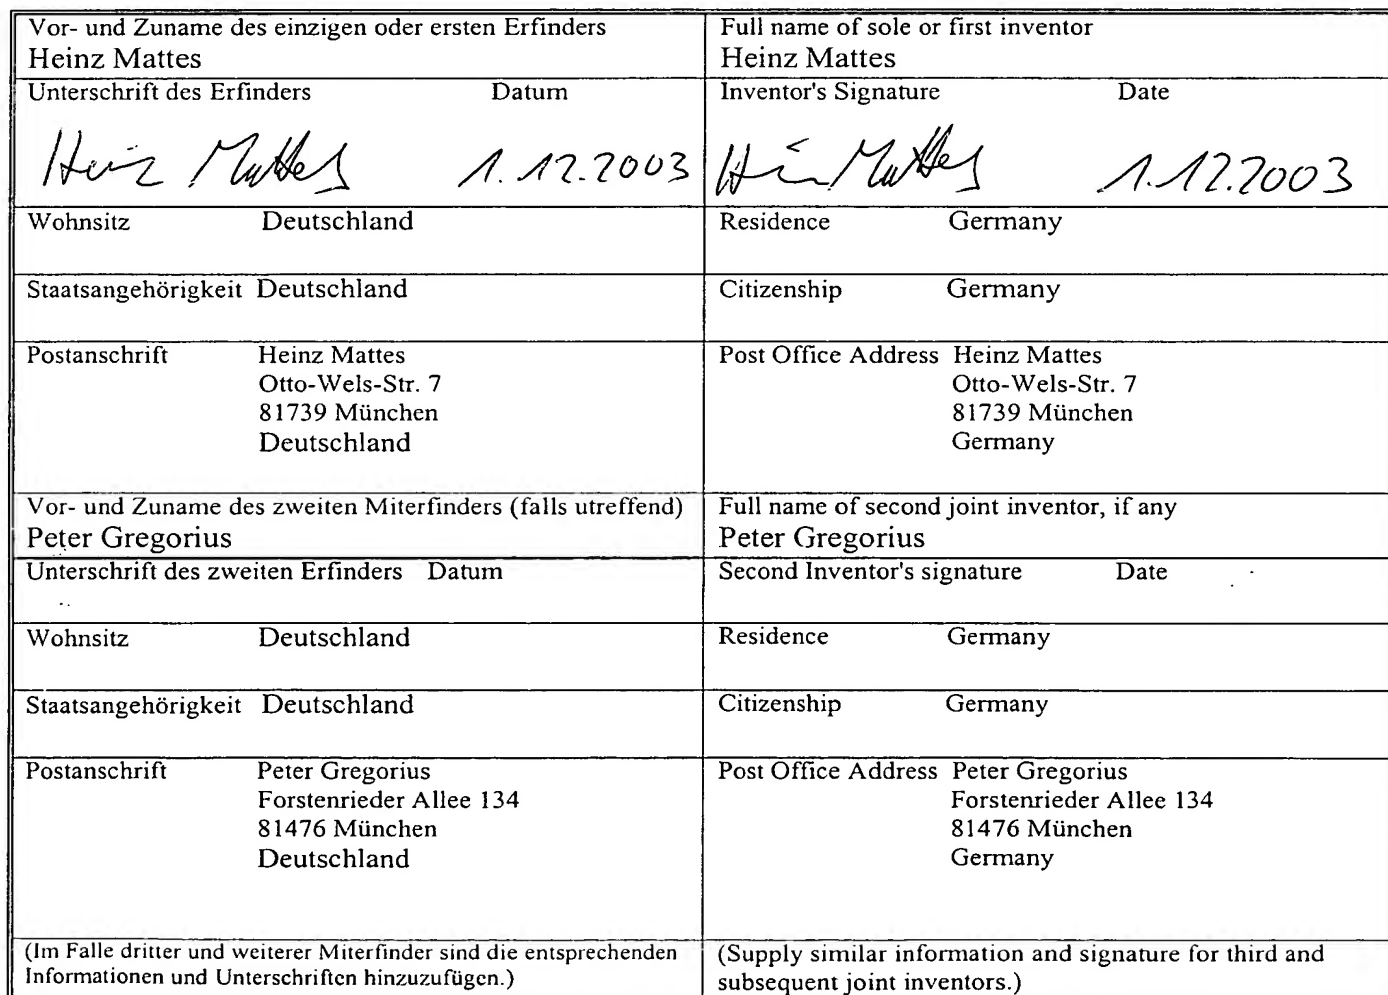 Vor- und Zuname des einzigen oder ersten Erfinders
Heinz Mattes
Full name of sole or first inventor
Heinz Mattes
Unterschrift des Erfinders Datum
Heinz Mattes 1.12.2003
Inventor's Signature Date
Heinz Mattes 1.12.2003
Wohnsitz Deutschland
Residence Germany
Staatsangehörigkeit Deutschland
Citizenship Germany
Postanschrift Heinz Mattes
Otto-Wels-Str. 7
81739 München
Deutschland
Post Office Address Heinz Mattes
Otto-Wels-Str. 7
81739 München
Germany
Vor- und Zuname des zweiten Miterfinders (falls utreffend)
Peter Gregorius
Full name of second joint inventor, if any
Peter Gregorius
Unterschrift des zweiten Erfinders Datum
Second Inventor's signature Date
Wohnsitz Deutschland
Residence Germany
Staatsangehörigkeit Deutschland
Citizenship Germany
Postanschrift Peter Gregorius
Forstenrieder Allee 134
81476 München
Deutschland
Post Office Address Peter Gregorius
Forstenrieder Allee 134
81476 München
Germany
(Im Falle dritter und weiterer Miterfinder sind die entsprechenden
Informationen und Unterschriften hinzuzufügen.)
(Supply similar information and signature for third and
subsequent joint inventors.)